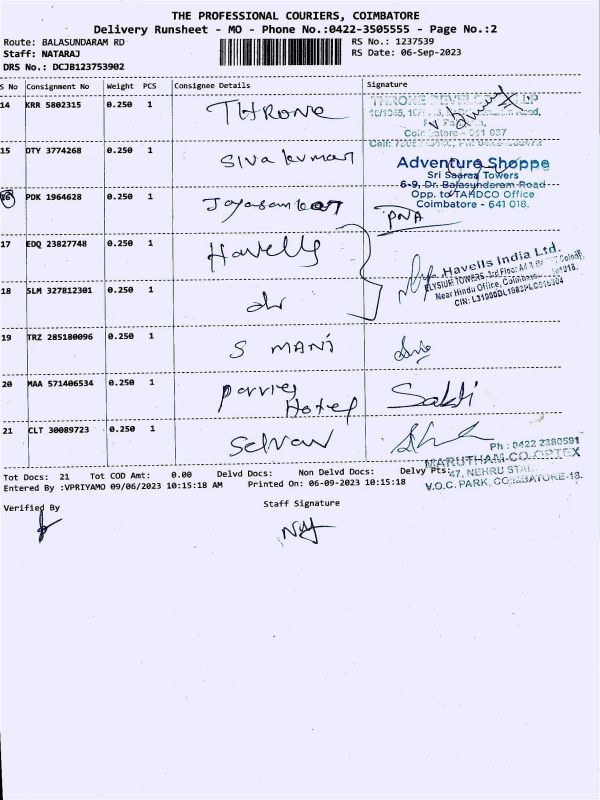 THE PROFESSIONAL COURIERS, COIMBATORE
Delivery Runsheet - MO - Phone No.:0422-3505555 - Page No.:2
Route: BALASUNDARAM RD
RS No.: 1237539
Staff: NATARAJ
RS Date: 06-Sep-2023
DRS No.: DCJB123753902
S No Consignment No Weight PCS Consignee Details Signature
14 KRR 5802315 0.250 1 THRONE
Coimbatore - 641 037
15 DTY 3774268 0.250 1 Siva kumar
Adventure Shoppe
Sri Saaraa Towers
6-9, Dr. Balasundaram Road
Opp. to TAHDCO Office
Coimbatore - 641 018.
16 PDK 1964628 0.250 1
PNA
17 EDQ 23827748 0.250 1 Havells
Havells India Ltd.
ELYSIUM TOWERS, 3rd Floor
Near Hindu Office, Coimbatore
CIN: L31900DL1983PLC016304
18 SLM 327812301 0.250 1 do
19 TRZ 285180096 0.250 1 S MANI
20 MAA 571406534 0.250 1 Hotel Sakti
21 CLT 30089723 0.250 1 Selvan
Ph : 0422 2380591
MARUTHAM CO-OPTEX
47, NEHRU STA
V.O.C. PARK, COIMBATORE-18.
Tot Docs: 21 Tot COD Amt: 0.00 Delvd Docs: Non Delvd Docs: Delvy Pts:
Entered By :VPRIYAMO 09/06/2023 10:15:18 AM Printed On: 06-09-2023 10:15:18
Verified By
Staff Signature